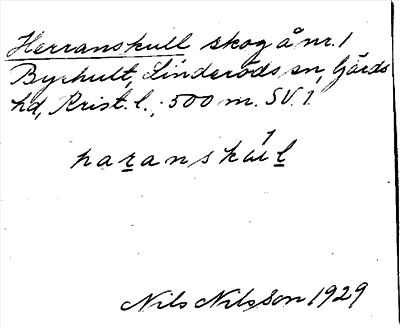 Herranskull skog å nr. 1
Byrhult, Linderöds sn, Gärds
hd, Krist. l., 500 m. SV. 1.
haranskul
Nils Nilsson 1929